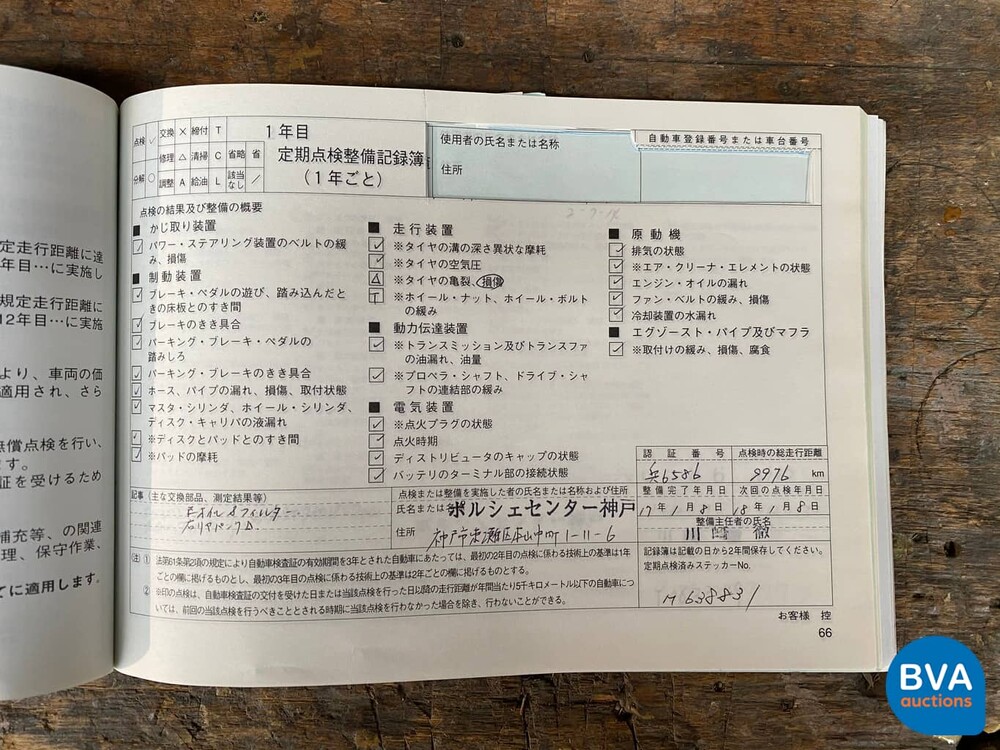 定走行距離に達
年目…に実施し
規定走行距離に
12年目…に実施
より、車両の価
適用され、さら
無償点検を行い、
ます。
証を受けるため
補充等、の関連
理、保守作業、
てに適用します。
点検 ✓ 交換 × 締付 T
修理 △ 清掃 C 省略 省
分解 ○ 調整 A 給油 L 該当なし ／
1年目
定期点検整備記録簿
(1年ごと)
使用者の氏名または名称
住所
自動車登録番号または車台番号
点検の結果及び整備の概要
■ かじ取り装置
パワー・ステアリング装置のベルトの緩
み、損傷
■ 制動装置
ブレーキ・ペダルの遊び、踏み込んだと
きの床板とのすき間
ブレーキのきき具合
パーキング・ブレーキ・ペダルの
踏みしろ
パーキング・ブレーキのきき具合
ホース、パイプの漏れ、損傷、取付状態
マスタ・シリンダ、ホイール・シリンダ、
ディスク・キャリパの液漏れ
※ディスクとパッドとのすき間
※パッドの摩耗
■ 走行装置
※タイヤの溝の深さ異状な摩耗
※タイヤの空気圧
△ ※タイヤの亀裂、損傷
T ※ホイール・ナット、ホイール・ボルト
の緩み
■ 動力伝達装置
※トランスミッション及びトランスファ
の油漏れ、油量
※プロペラ・シャフト、ドライブ・シャ
フトの連結部の緩み
■ 電気装置
※点火プラグの状態
点火時期
ディストリビュータのキャップの状態
バッテリのターミナル部の接続状態
■ 原動機
排気の状態
※エア・クリーナ・エレメントの状態
エンジン・オイルの漏れ
ファン・ベルトの緩み、損傷
冷却装置の水漏れ
■ エグゾースト・パイプ及びマフラ
※取付けの緩み、損傷、腐食
認証番号 点検時の総走行距離
兵6586 9976 km
整備完了年月日 次回の点検年月日
17年1月8日 18年1月8日
整備主任者の氏名
川崎 徹
記事 (主な交換部品、測定結果等)
点検または整備を実施した者の氏名または名称および住所
氏名または ポルシェセンター神戸
住所 神戸市東灘区本山中町1-11-6
(注) ① 法第61条第2項の規定により自動車検査証の有効期間を3年とされた自動車にあたっては、最初の2年目の点検に係わる技術上の基準は1年
ごとの欄に掲げるものとし、最初の3年目の点検に係わる技術上の基準は2年ごとの欄に掲げるものとする。
② ※印の点検は、自動車検査証の交付を受けた日または当該点検を行った日以降の走行距離が年間当たり5千キロメートル以下の自動車につ
いては、前回の当該点検を行うべきこととされる時期に当該点検を行わなかった場合を除き、行わないことができる。
記録簿は記載の日から2年間保存してください。
定期点検済みステッカーNo.
M 638831
お客様 控
66
BVA
auctions